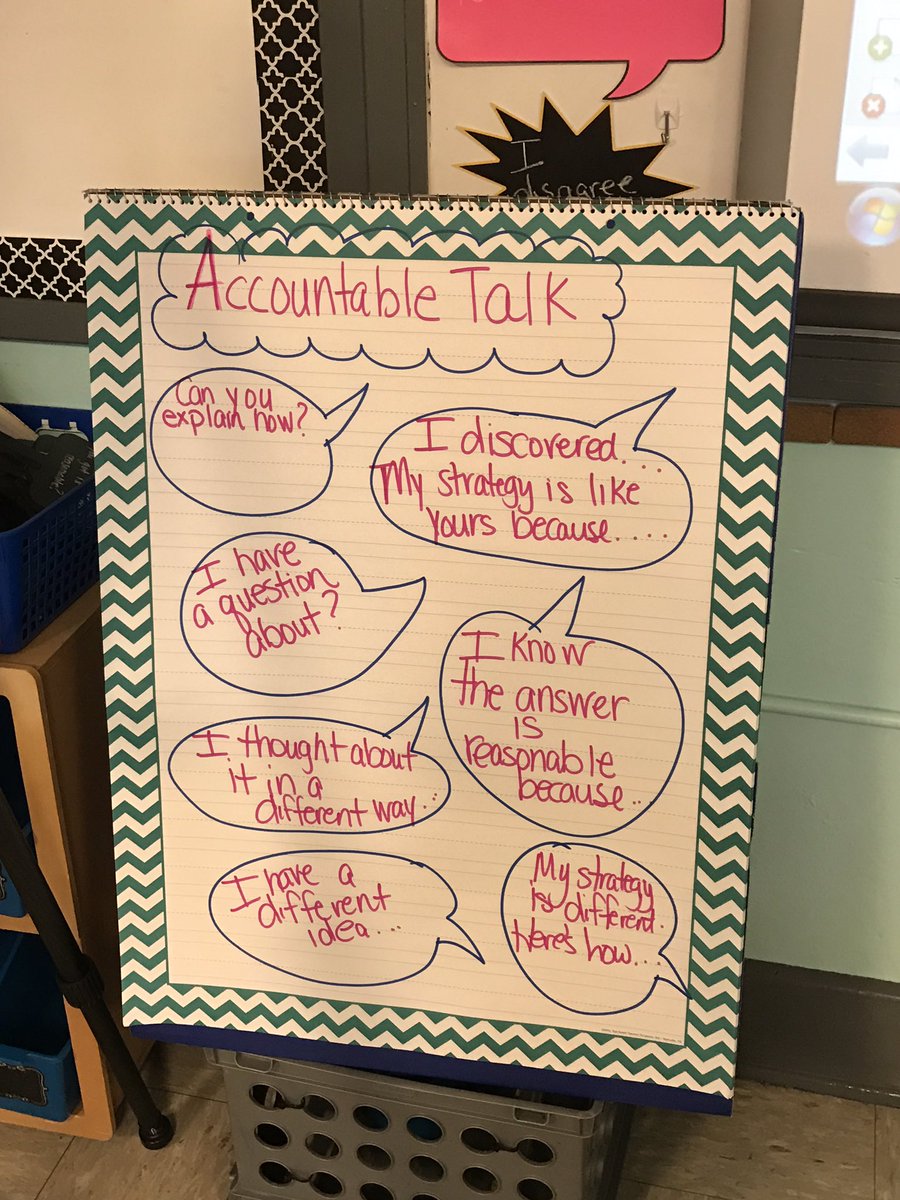 I
disagree
Accountable Talk
Can you
explain how?
I discovered....
My strategy is like
yours because....
I have
a question
about?
I know
the answer
is
reasonable
because..
I thought about
it in a
different way...
I have a
different
idea...
My strategy
is different.
Here's how...